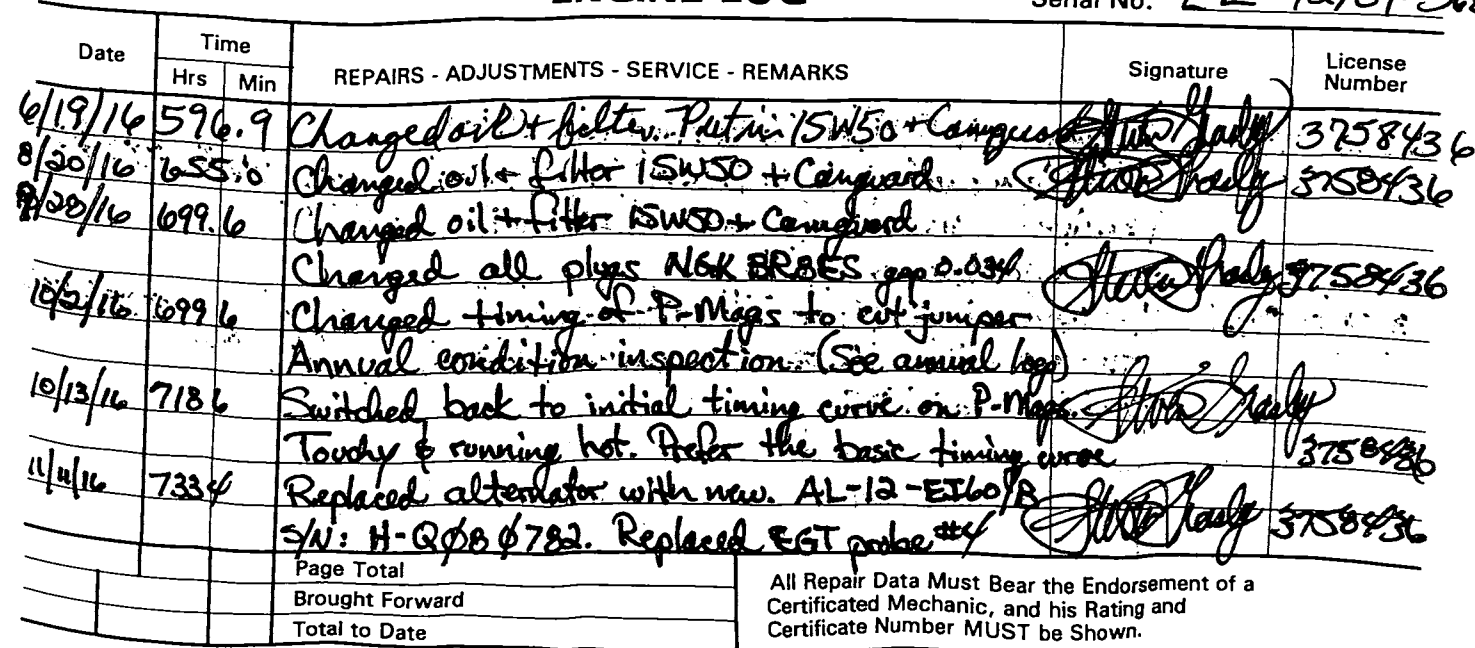 Serial No.
Date Time REPAIRS - ADJUSTMENTS - SERVICE - REMARKS Signature License Number
Hrs Min
6/19/16 596.9 Changed oil + filter. Put in 15W50 + Camguard 3758436
8/20/16 655.0 Changed oil + filter 15W50 + Camguard 3758436
9/28/16 699.6 Changed oil + filter 15W50 + Camguard
Changed all plugs NGK BR8ES gap 0.034 3758436
10/2/16 699 6 Changed timing of P-Mags to cut jumper
Annual condition inspection. (See annual logs)
10/13/16 718 6 Switched back to initial timing curve on P-Mags.
Touchy & running hot. Prefer the basic timing curve 3758436
11/11/16 733 4 Replaced alternator with new. AL-12-EI60/B
S/N: H-QØBØ782. Replaced EGT probe #4 3758436
Page Total
Brought Forward
Total to Date
All Repair Data Must Bear the Endorsement of a
Certificated Mechanic, and his Rating and
Certificate Number MUST be Shown.